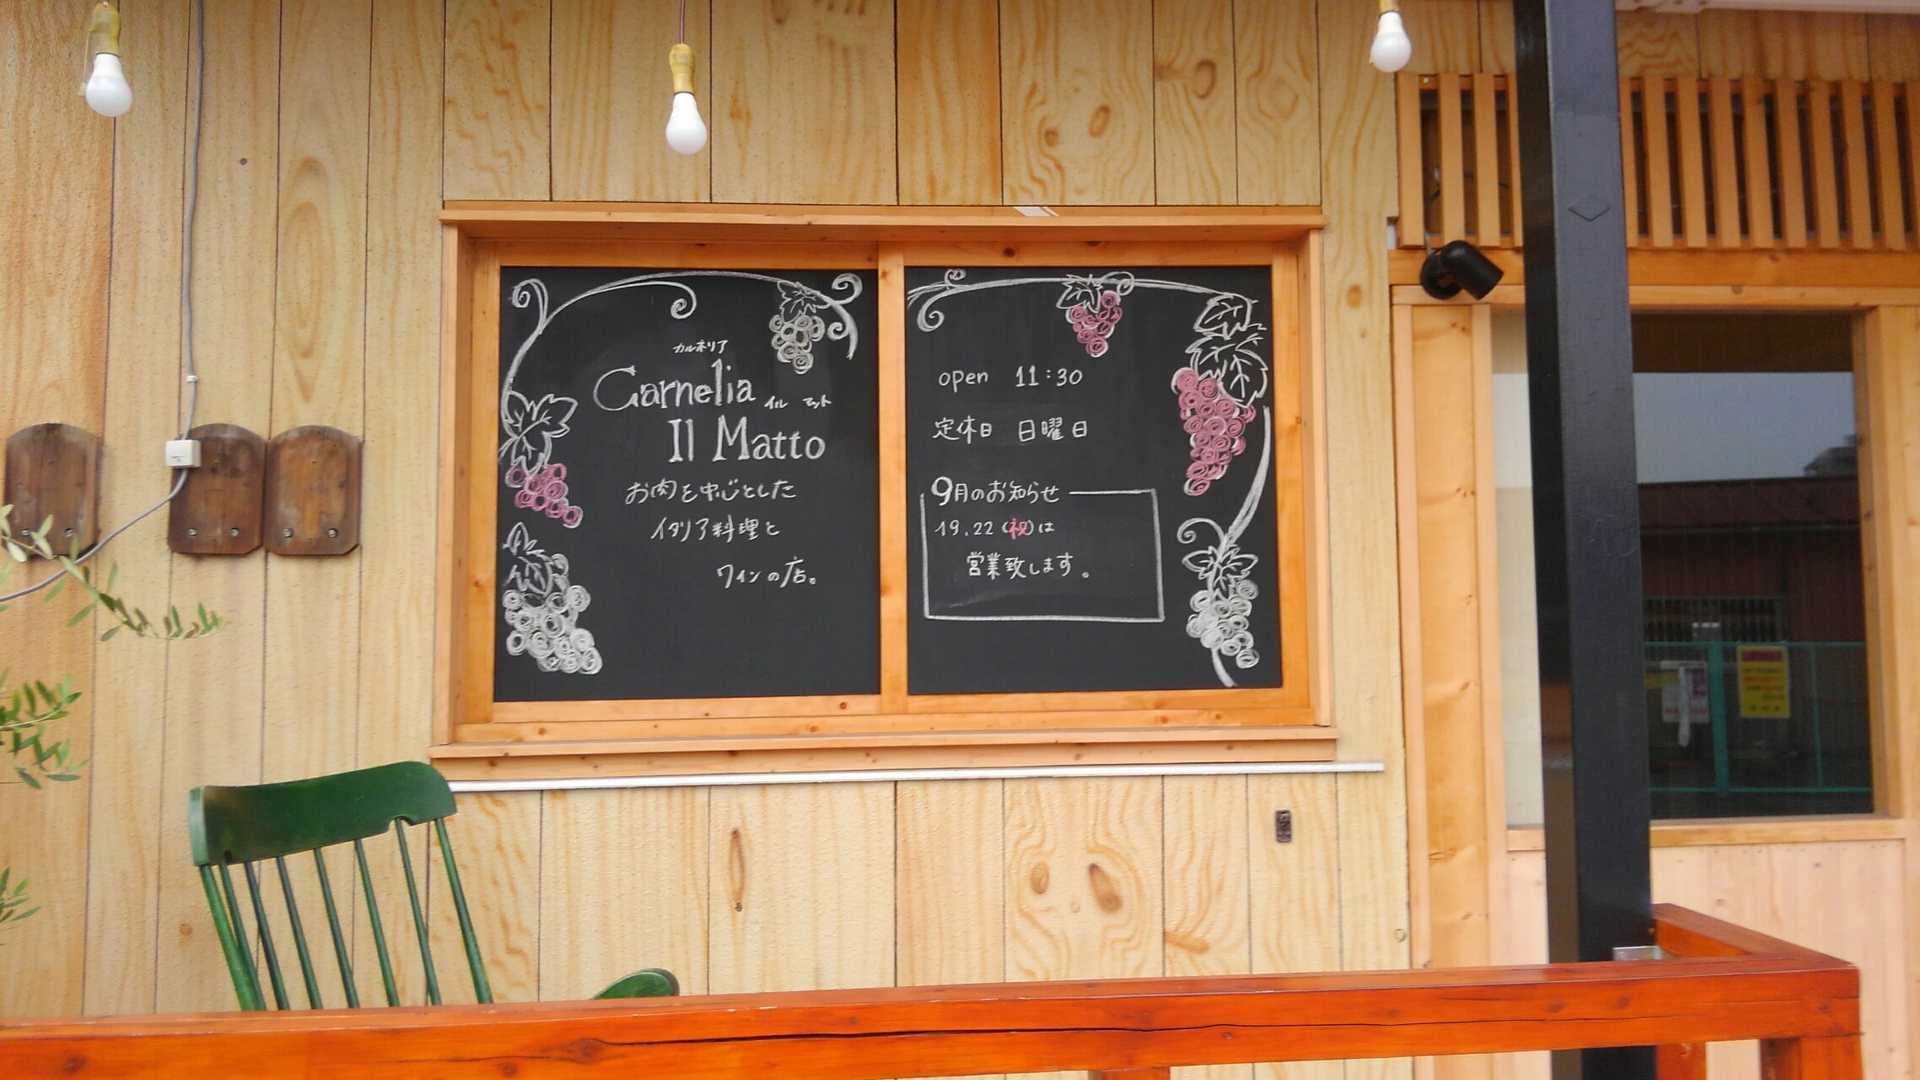 カルネリア
Carnelia
イル マット
Il Matto
お肉を中心とした
イタリア料理と
ワインの店。
open 11:30
定休日 日曜日
9月のお知らせ
19.22(祝)は
営業致します。